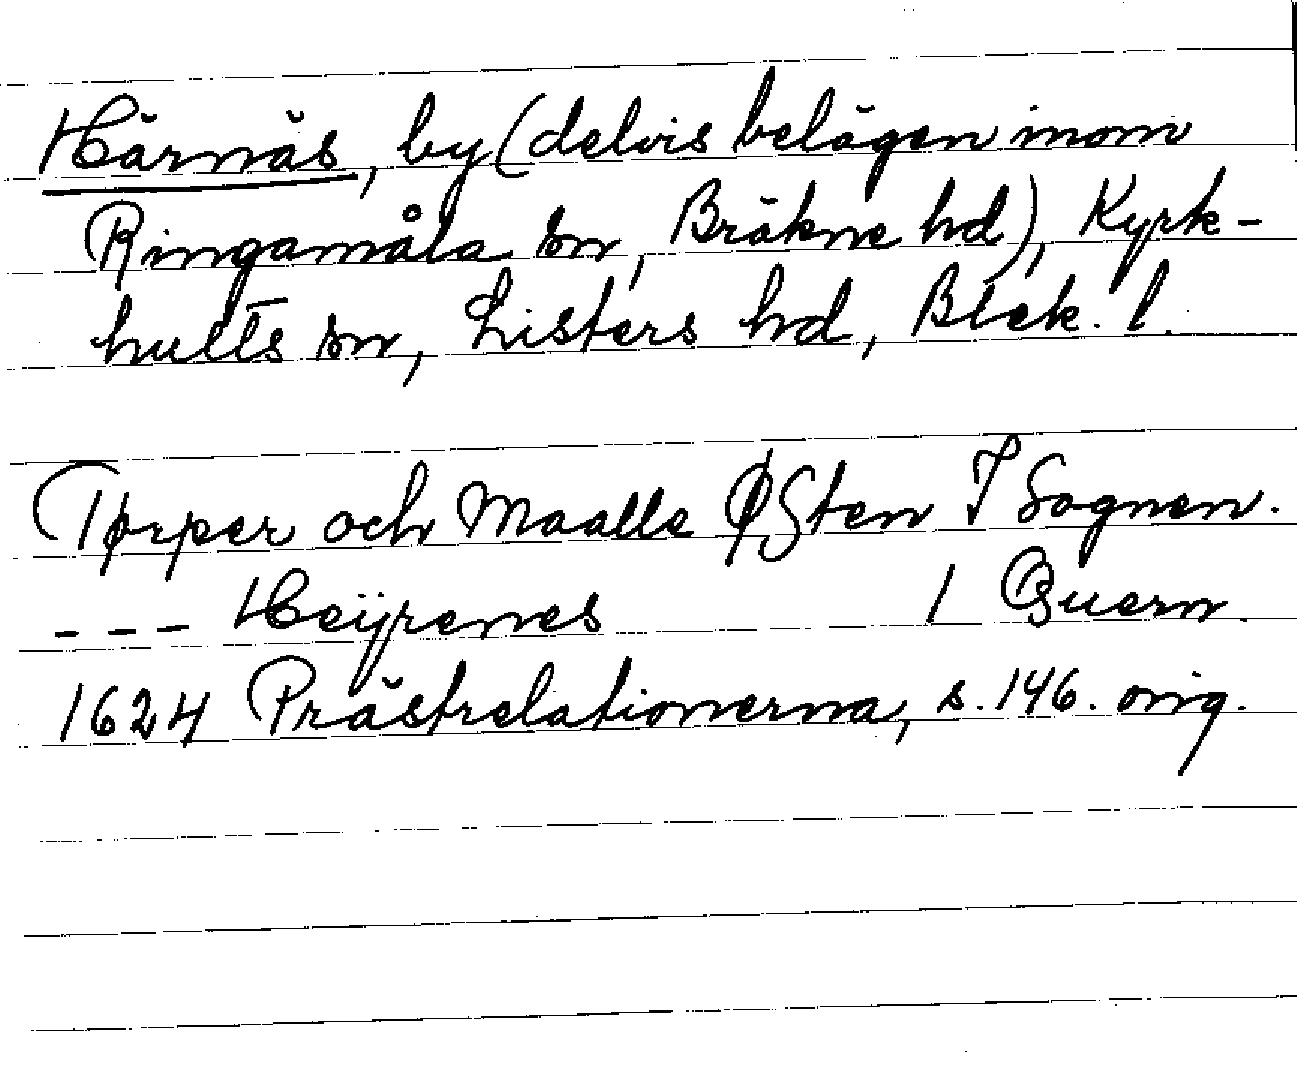 Härnäs, by (delvis belägen inom
Ringamåla sn, Bräkne hd), Kyrk-
hults sn, Listers hd, Blek. l.
Tørper och Maalle ØSten I Sognen.
--- Heÿrenes 1 Quern.
1624 Prästrelationerna, s. 146. orig.